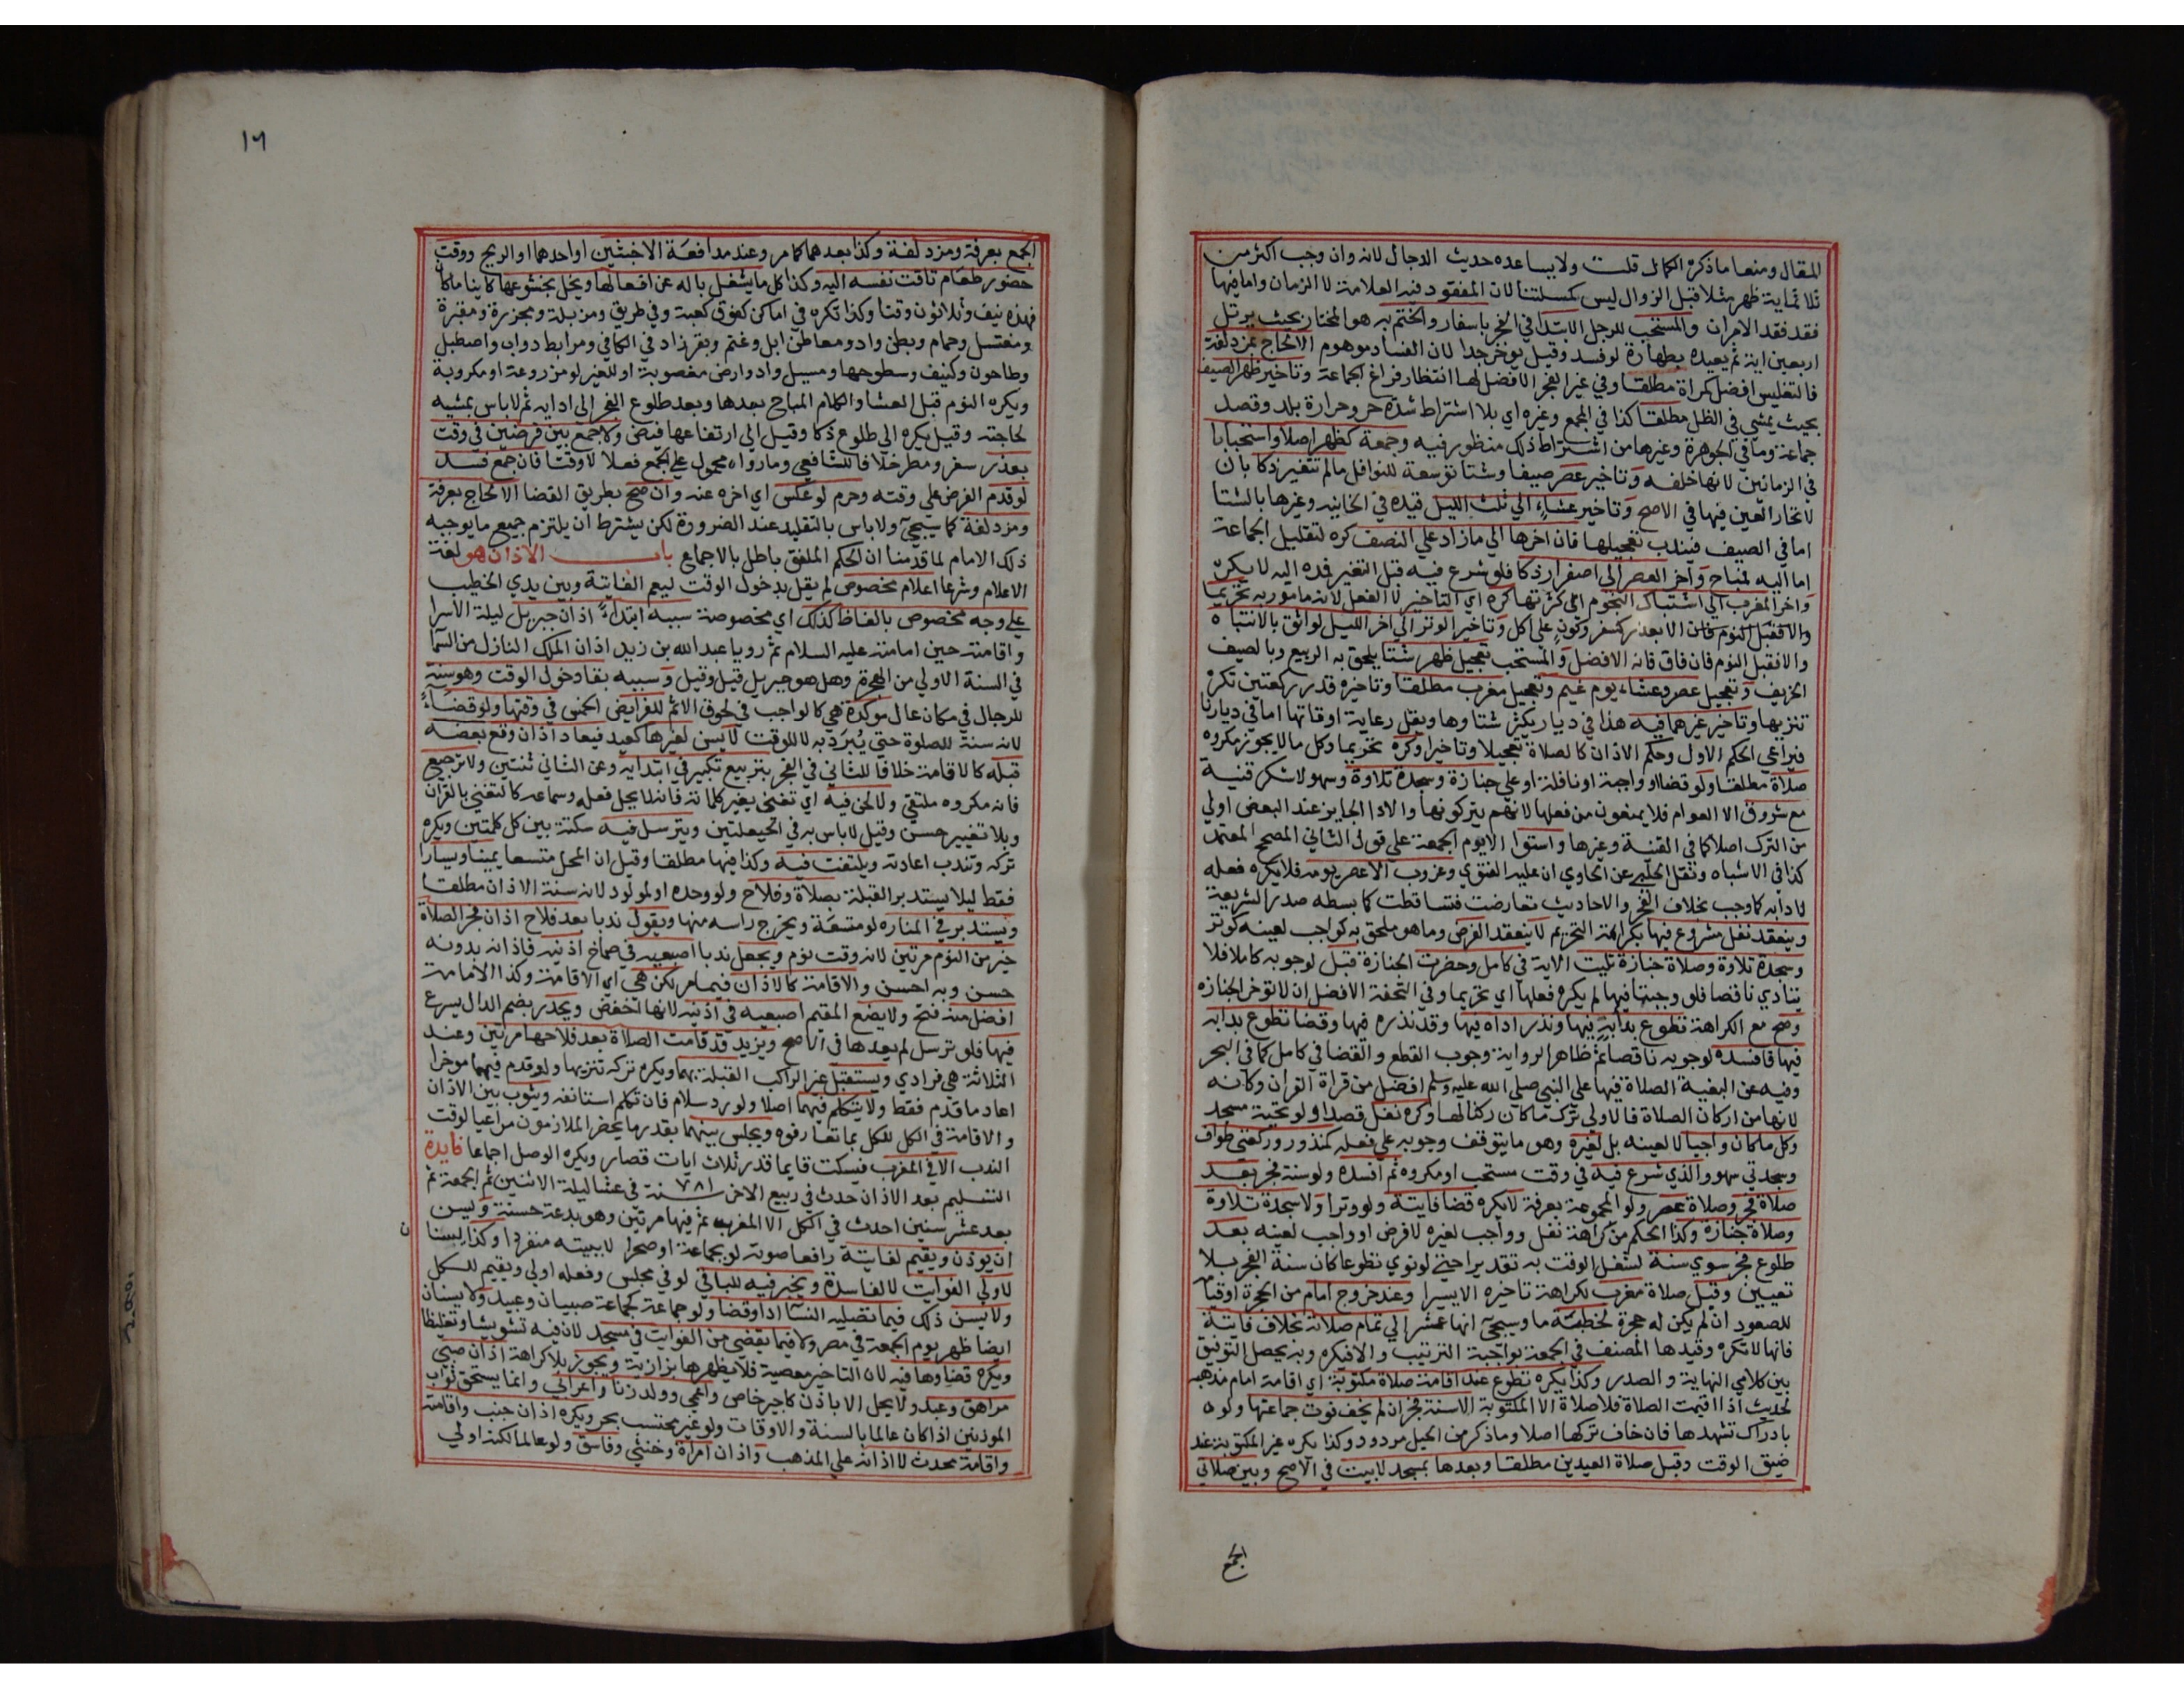 للمقال ومنعا ما ذكره الكمال قلت ولا يساعده حديث الدجال لانه وان وجب اكثر من
ثلاثماية ظهر مثلا قبل الزوال ليس كمسلتنا لان المفقود فيه العلامة لا الزمان واما فيها
فقد فقد الامران والمستحب للرجل الابتدا في الفجر باسفار والختم به هو المختار بحيث يرتل
اربعين اية ثم يعيده بطهارة لو فسد وقيل يوخر جدا لان الفساد موهوم الالحاج بمزدلفة
فالتغليس افضل كمراة مطلقا وفي غير الفجر الافضل لها انتظار فراغ الجماعة وتاخير ظهر الصيف
بحيث يمشي في الظل مطلقا كذا في المجمع وغيره اي بلا اشتراط شدة حر وحرارة بلد وقصد
جماعة وما في الجوهرة وغيرها من اشتراط ذلك منظور فيه وجمعة كظهر اصلا واستحبابا
في الزمانين لانها خلفه وتاخير عصر صيفا وشتا توسعة للنوافل مالم تتغير ذكا بان
لا تحار العين فيها في الاصح وتاخير عشاء الي ثلث الليل قيده في الخانيه وغيرها بالشتا
اما في الصيف فيندب تعجيلها فان اخرها الي مازاد علي النصف كره لتقليل الجماعة
اما اليه فمباح واخر العصر الي اصفرار ذكا فلو شرع فيه قبل التغير فمده اليه لا يكره
واخر المغرب الي اشتباك النجوم اي كثرتها كره اي التاخير لا الفعل لانه مامور به تحريما
والا فقبل النوم فان الا بعذر كسفر وكون علي اكل وتاخير الوتر الي اخر الليل لواثق بالانتباه
والا فقبل النوم فان فاق فانه الافضل والمستحب تعجيل ظهر شتا يلحق به الربيع وبالصيف
الخريف وتعجيل عصر وعشاء يوم غيم وتعجيل مغرب مطلقا وتاخيره قدر ركعتين تكره
تنزيها وتاخير غيرهما فيه هذا في ديار يكثر شتاوها ويقل رعاية اوقاتها اما في ديارنا
فيراعي الحكم الاول وحكم الاذان كالصلاة تعجيلا وتاخيرا وكره تحريما وكل مالا يجوز مكروه
صلاة مطلقا ولو قضا او واجبة او نافلة او علي جنازة وسجدة تلاوة وسهو لا شكر قنية
مع شروق الا العوام فلا يمنعون من فعلها لانهم يتركونها والادا الجايز عند البعض اولي
من الترك اصلا كما في القنية وغيرها واستوا الا يوم الجمعة علي قول الثاني المصحح المعتمد
كذا في الاشباه ونقل الحلبي عن الحاوي ان عليه الفتوي وغروب الا عصر يومه فلا يكره فعله
لادايه كما وجب بخلاف الفجر والاحاديث تعارضت فتساقطت كما بسطه صدر الشريعة
وينعقد نفل مشروع فيها بكراهة التحريم لا ينعقد الفرض وما هو ملحق به كواجب لعينه كوتر
وسجدة تلاوة وصلاة جنازة تليت الاية في كامل وحضرت الجنازة قبل لوجوبه كاملا فلا
يتادي ناقصا فلو وجبتا فيها لم يكره فعلها اي تحريما وفي التحفة الافضل ان لا توخر الجنازه
وصح مع الكراهة تطوع بداية فيها ونذر اداه فيها وقد نذره فيها وقضا تطوع بدا به
فيها فافسده لوجوبه ناقصا ثم ظاهر الرواية وجوب القطع والقضا في كامل كما في البحر
وفيه عن البغية الصلاة فيها علي النبي صلي الله عليه وسلم افضل من قراة القران وكانه
لانها من اركان الصلاة فالاولي ترك ما كان ركنا لها وكره نفل قصدا ولو تحية مسجد
وكل ماكان واجبا لا لعينه بل لغيره وهو ما يتوقف وجوبه علي فعله كمنذور وركعتي طواف
وسجدتي سهو والذي شرع فيه في وقت مستحب او مكروه ثم افسده ولو سنة فجر بعد
صلاة فجر وصلاة عصر ولو المجموعة بعرفة لا يكره قضا فايتة ولو وترا ولا سجدة تلاوة
وصلاة جنازة وكذا الحكم من كراهة نفل وواجب لغيره لا فرض او واجب لعينه بعد
طلوع فجر سوي سنة لشغل الوقت به تقديرا حتي لو نوي تطوعا كان سنة الفجر بلا
تعيين وقبل صلاة مغرب لكراهة تاخيره الا يسيرا وعند خروج امام من الحجرة او قيامه
للصعود ان لم يكن له حجرة لخطبة ما وسيجئ انها عشر الي تمام صلاته بخلاف فايتة
فانها لا تكره وقيدها المصنف في الجمعة بواجبة الترتيب والا فيكره وبه يحصل التوفيق
بين كلامي النهاية والصدر وكذا يكره تطوع عند اقامة صلاة مكتوبة اي اقامة امام مذهبه
لحديث اذا اقيمت الصلاة فلا صلاة الا المكتوبة الا سنة فجر ان لم يخف فوت جماعتها ولو
بادراك تشهدها فان خاف تركها اصلا وما ذكر من الحيل مردود وكذا يكره غير المكتوبة عند
ضيق الوقت وقبل صلاة العيدين مطلقا وبعدها بمسجد لا ببيت في الاصح وبين صلاتي
الجمع
١٦
الجمع بعرفة ومزدلفة وكذا بعدهما كما مر وعند مدافعة الاخبثين او احدهما او الريح ووقت
حضور طعام تاقت نفسه اليه وكذا كل ما يشغل باله عن افعالها ويخل بخشوعها كاينا ماكان
فهذه نيف وثلاثون وقتا وكذا تكره في اماكن كفوق كعبة وفي طريق ومزبلة ومجزرة ومقبرة
ومغتسل وحمام وبطن واد ومعاطن ابل وغنم وبقر زاد في الكافي ومرابط دواب واصطبل
وطاحون وكنيف وسطوحها ومسيل واد وارض مغصوبة او للغير لو مزروعة او مكروبة
ويكره النوم قبل العشا والكلام المباح بعدها وبعد طلوع الفجر الي ادايه ثم لاباس بمشيه
لحاجته وقيل يكره الي طلوع ذكا وقيل الي ارتفاعها فيض ولا جمع بين فرضين في وقت
بعذر سفر ومطر خلافا للشافعي وما رواه محمول علي الجمع فعلا لا وقتا فان جمع فسد
لو قدم الفرض علي وقته وحرم لو عكس اي اخره عنه وان صح بطريق القضا الالحاج بعرفة
ومزدلفة كما سيجيئ ولاباس بالتقليد عند الضرورة لكن يشترط ان يلتزم جميع ما يوجبه
ذلك الامام لما قدمنا ان الحكم الملفق باطل بالاجماع باب الاذان هو لغة
الاعلام وشرعا اعلام مخصوص لم يقل بدخول الوقت ليعم الفايتة وبين يدي الخطيب
علي وجه مخصوص بالفاظ كذلك اي مخصوصة سببه ابتداءً اذان جبريل ليلة الاسرا
واقامته حين امامته عليه السلام ثم رويا عبد الله بن زيد اذان الملك النازل من السما
في السنة الاولي من الهجرة وهل هو جبريل قيل وقيل وسببه بقا دخول الوقت وهو سنة
للرجال في مكان عال موكدة هي كالواجب في لحوق الاثم للفرايض الخمس في وقتها ولو قضاءً
لانه سنة للصلوة حتي يُبرَدِ به لا للوقت لا يسن لغيرها كعيد فيعاد اذان وقع بعضه
قبله كالاقامة خلافا للثاني في الفجر بتربيع تكبير في ابتدايه وعن الثاني ثنتين ولا ترجيع
فانه مكروه ملتقي ولا لحن فيه اي تغني بغير كلماته فانه لا يحل فعله وسماعه كالتغني بالقران
وبلا تغيير حسن وقيل لاباس به في الحيعلتين ويترسل فيه سكتة بين كل كلمتين ويكره
تركه وتندب اعادته ويلتفت فيه وكذا فيها مطلقا وقيل ان المحل متسعا يمينا ويسارا
فقط ليلا يستدبر القبلة بصلاة وفلاح ولو وحده او لمولود لانه سنة الاذان مطلقا
ويستدير في المناره لو متسعة ويخرج راسه منها ويقول ندبا بعد فلاح اذان فجر الصلاة
خير من النوم مرتين لانه وقت نوم ويجعل ندبا اصبعيه في صماخ اذنيه فاذانه بدونه
حسن وبه احسن والاقامة كالاذان فيما مر لكن هي اي الاقامة وكذا الامامة
افضل منه فتح ولا يضع المقيم اصبعيه في اذنيه لانها اخفض ويحدر بضم الدال يسرع
فيها فلو ترسل لم يعدها في الاصح ويزيد قد قامت الصلاة بعد فلاحها مرتين وعند
الثلاثة هي فرادي ويستقبل غير الراكب القبلة بهما ويكره تركه تنزيها ولو قدم فيهما موخرا
اعاد ما قدم فقط ولا يتكلم فيهما اصلا ولو رد سلام فان تكلم استانفه ويثوب بين الاذان
والاقامة في الكل للكل بما تعارفوه ويجلس بينهما بقدر ما يحضر الملازمون مراعيا لوقت
الندب الا في المغرب فيسكت قايما قدر ثلاث ايات قصار ويكره الوصل اجماعا فايدة
التسليم بعد الاذان حدث في ربيع الاخر سنة ٧٨١ في عشا ليلة الاثنين ثم الجمعة ثم
بعد عشر سنين احدث في الكل الا المغرب ثم فيها مرتين وهو بدعة حسنة ويسن
ان يوذن ويقيم لفايتة رافعا صوته لو بجماعة او صحرا لا ببيته منفردا وكذا يسنا
ن
لاولي الفوايت لا لفاسدة ويخير فيه للباقي لو في مجلس وفعله اولي ويقيم للكل
ولا يسن ذلك فيما تصليه النسا ادا وقضا ولو جماعة كجماعة صبيان وعبيد ولا يسنان
ايضا ظهر يوم الجمعة في مصر ولا فيما يقضي من الفوايت في مسجد لان فيه تشويشا وتغليظا
ويكره قضاوها فيه لان التاخير معصية فلا يظهرها بزازية ويجوز بلا كراهة اذان صبي
مراهق وعبد ولا يحل الا باذن كاجير خاص واعمي وولد زنا واعرابي وانما يستحق ثواب
الموذنين اذا كان عالما بالسنة والاوقات ولو غير محتسب بحر ويكره اذان جنب واقامته
واقامة محدث لا اذانه علي المذهب واذان امراة وخنثي وفاسق ولو عالما لكنه اولي